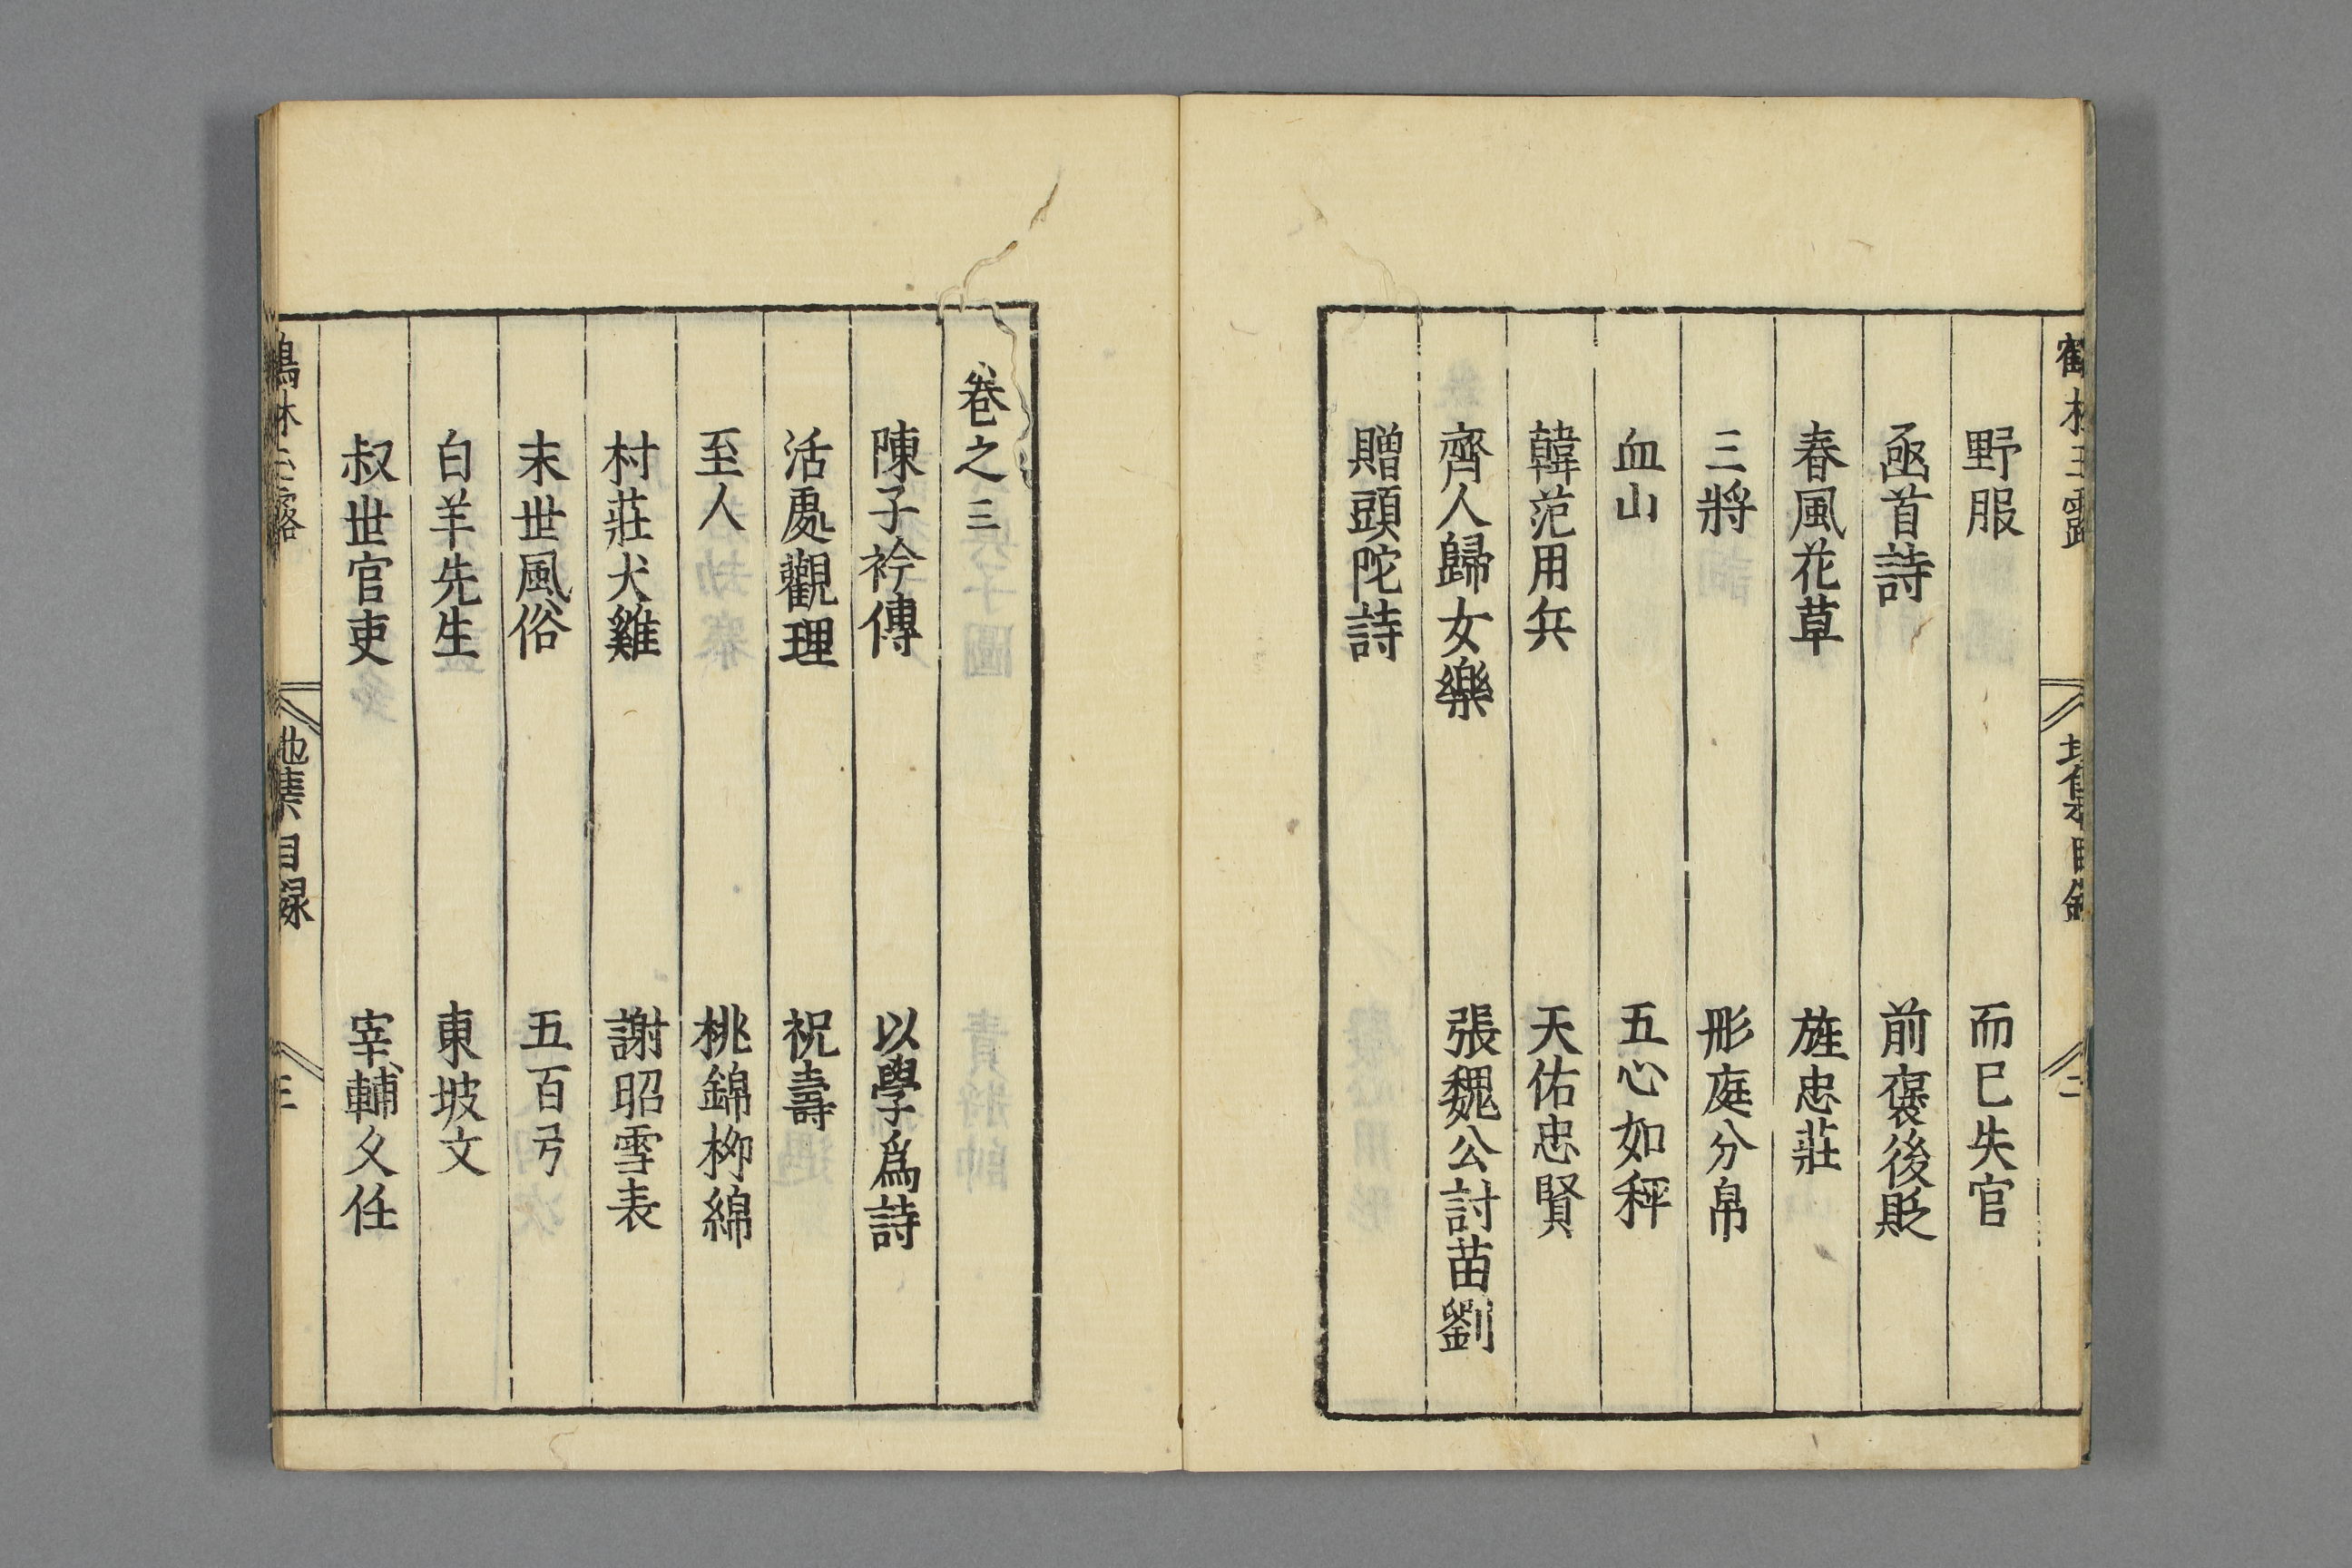 鶴林玉露 地集目錄 二
野服 而巳失官
亟首詩 前褒後貶
春風花草 旌忠莊
三將 形庭分帛
血山 五心如秤
韓范用兵 天佑忠賢
齊人歸女樂 張魏公討苗劉
贈頭陀詩
卷之三
陳子衿傳 以學爲詩
活處觀理 祝壽
至人 桃錦柳綿
村莊犬雞 謝昭雪表
末世風俗 五百弓
白羊先生 東坡文
叔世官吏 宰輔久任
鶴林玉露 地集目録 三